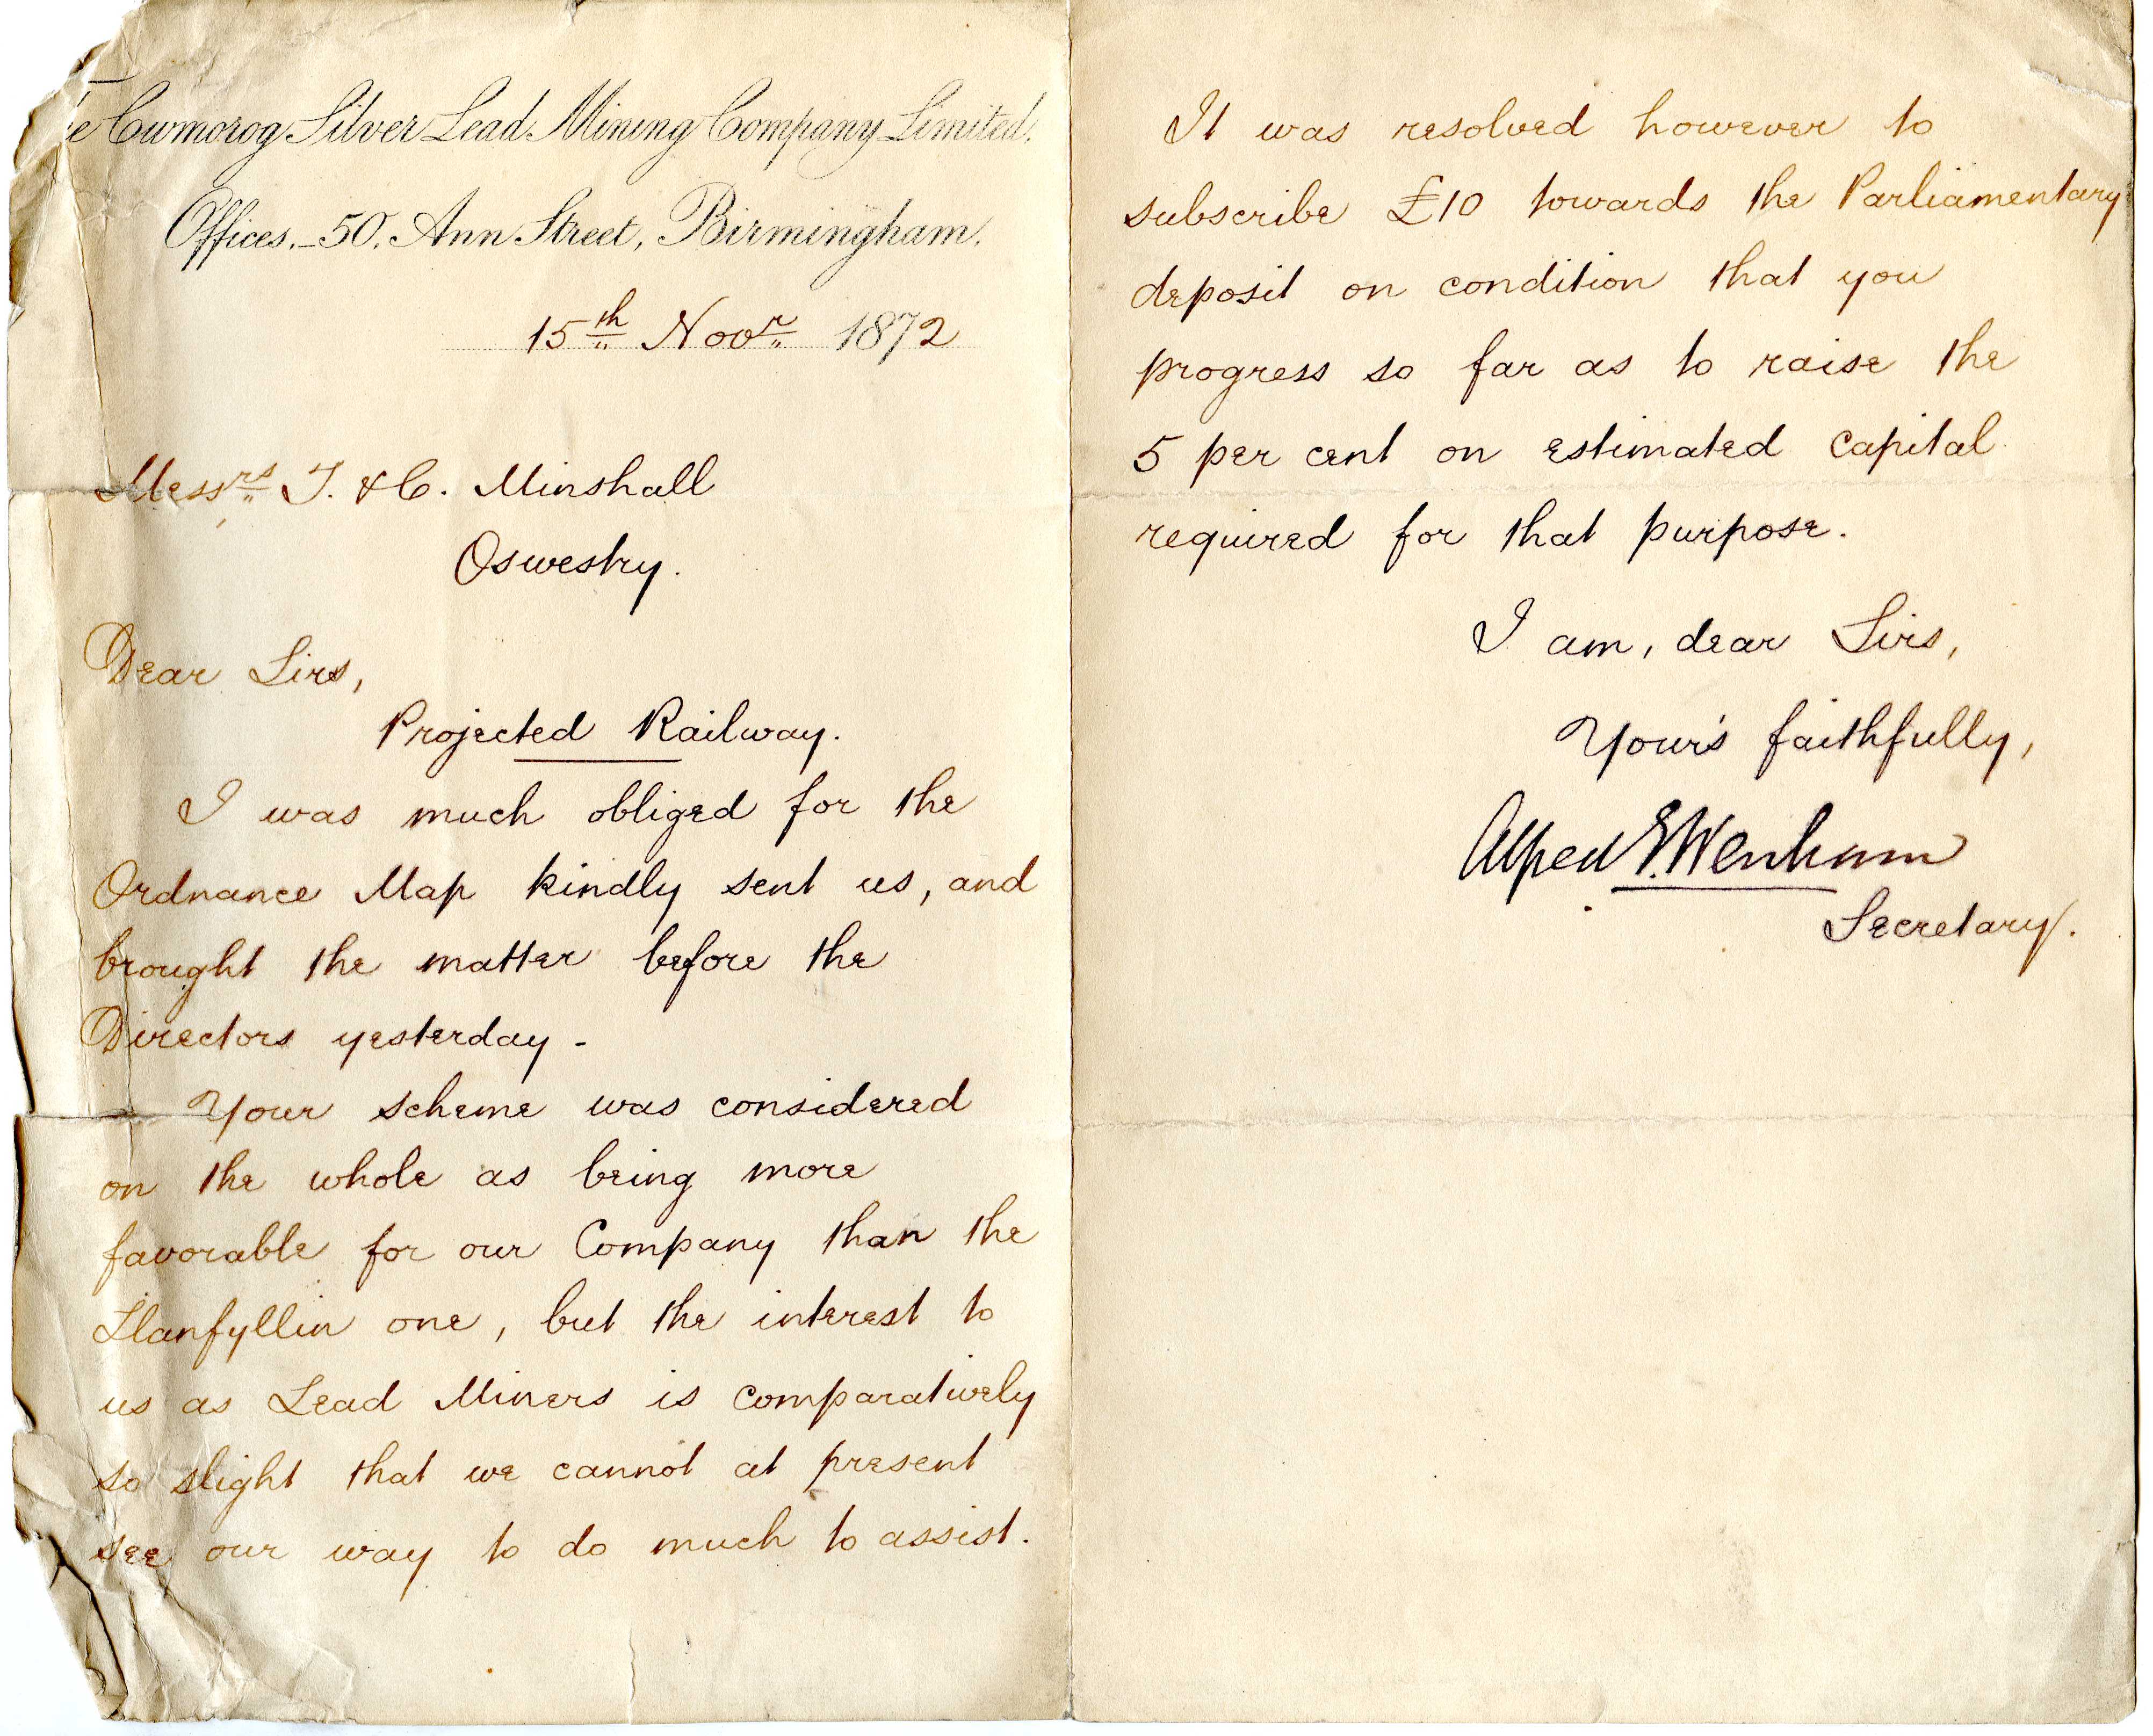 The Cwmorog Silver Lead Mining Company Limited.
Offices, 50, Ann Street, Birmingham.
15th Novr 1872
Messrs T. & C. Minshall
Oswestry.
Dear Sirs,
Projected Railway.
I was much obliged for the
Ordnance Map kindly sent us, and
brought the matter before the
Directors yesterday -
Your scheme was considered
on the whole as being more
favorable for our Company than the
Llanfyllin one, but the interest to
us as Lead Miners is comparatively
so slight that we cannot at present
see our way to do much to assist.
It was resolved however to
subscribe £10 towards the Parliamentary
deposit on condition that you
progress so far as to raise the
5 per cent on estimated capital
required for that purpose.
I am, dear Sirs,
Your's faithfully,
Alfred E. Wenham
Secretary.